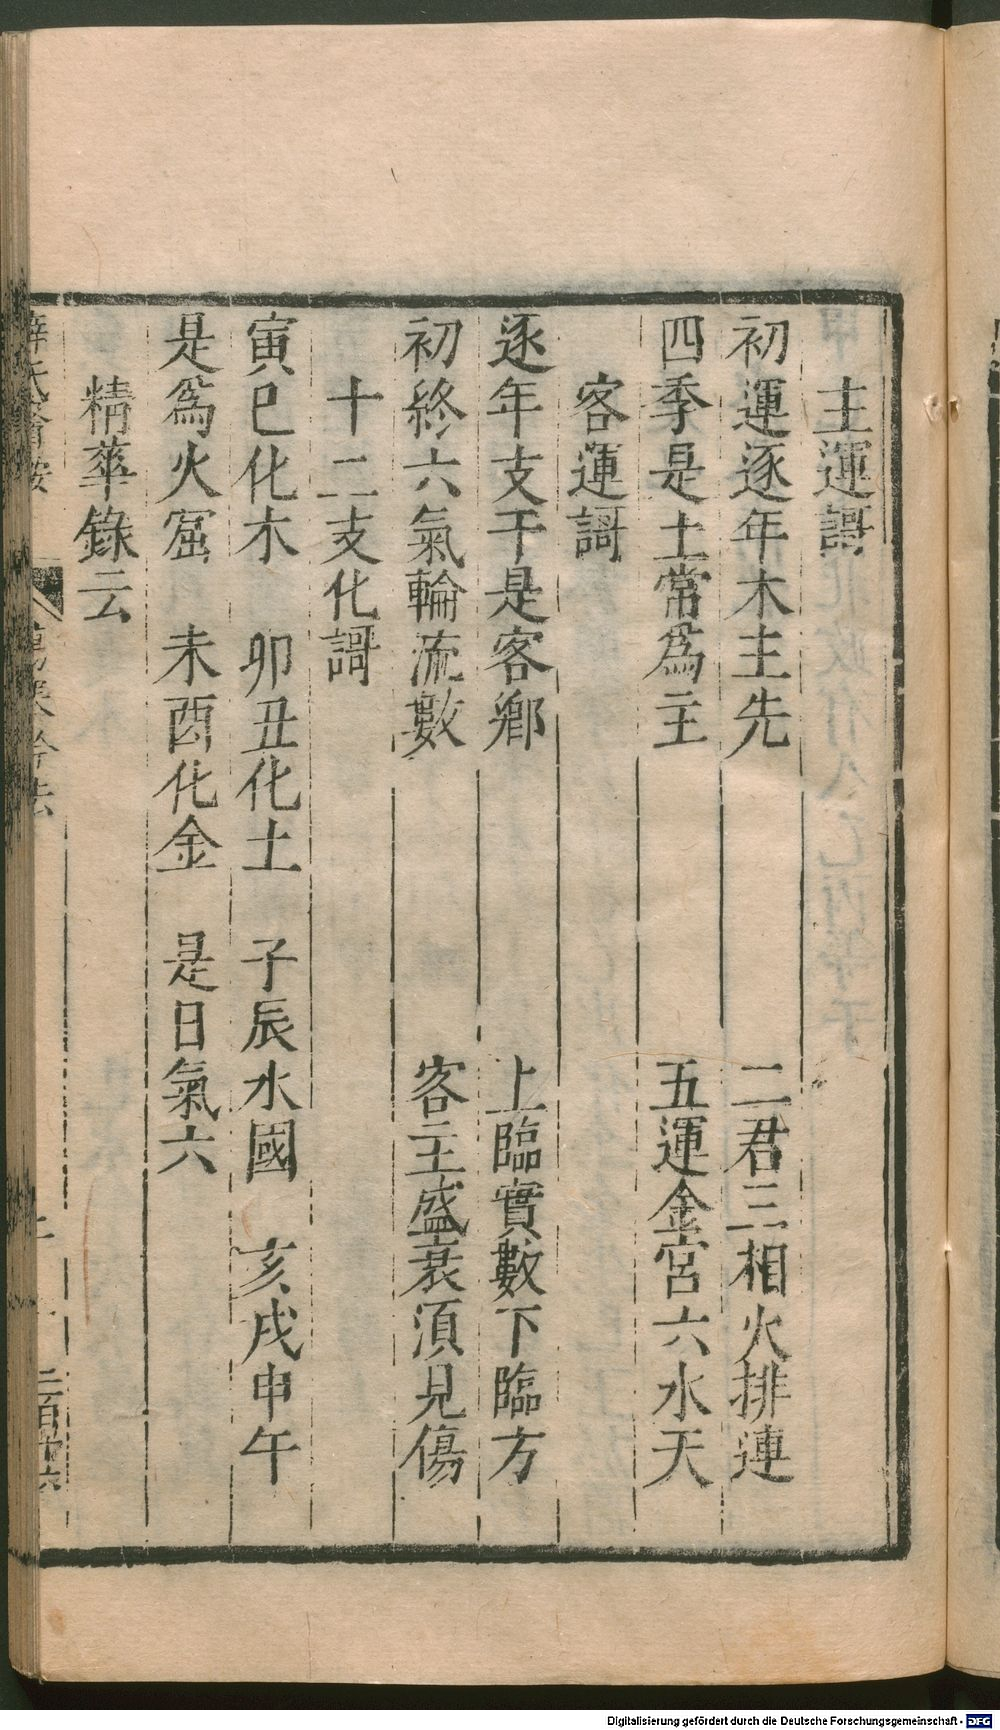 主運謌
初運逐年木主先 二君三相火排連
四季是土常為主 五運金宮六水天
客運謌
逐年支干是客鄉 上臨實數下臨方
初終六氣輪流數 客主盛衰須見傷
十二支化謌
寅巳化木 卯丑化土 子辰水國 亥戌申午
是為火窟 未酉化金 是日氣六
精華錄云
薛氏醫按
二百廿六
Digitalisierung gefördert durch die Deutsche Forschungsgemeinschaft - DFG